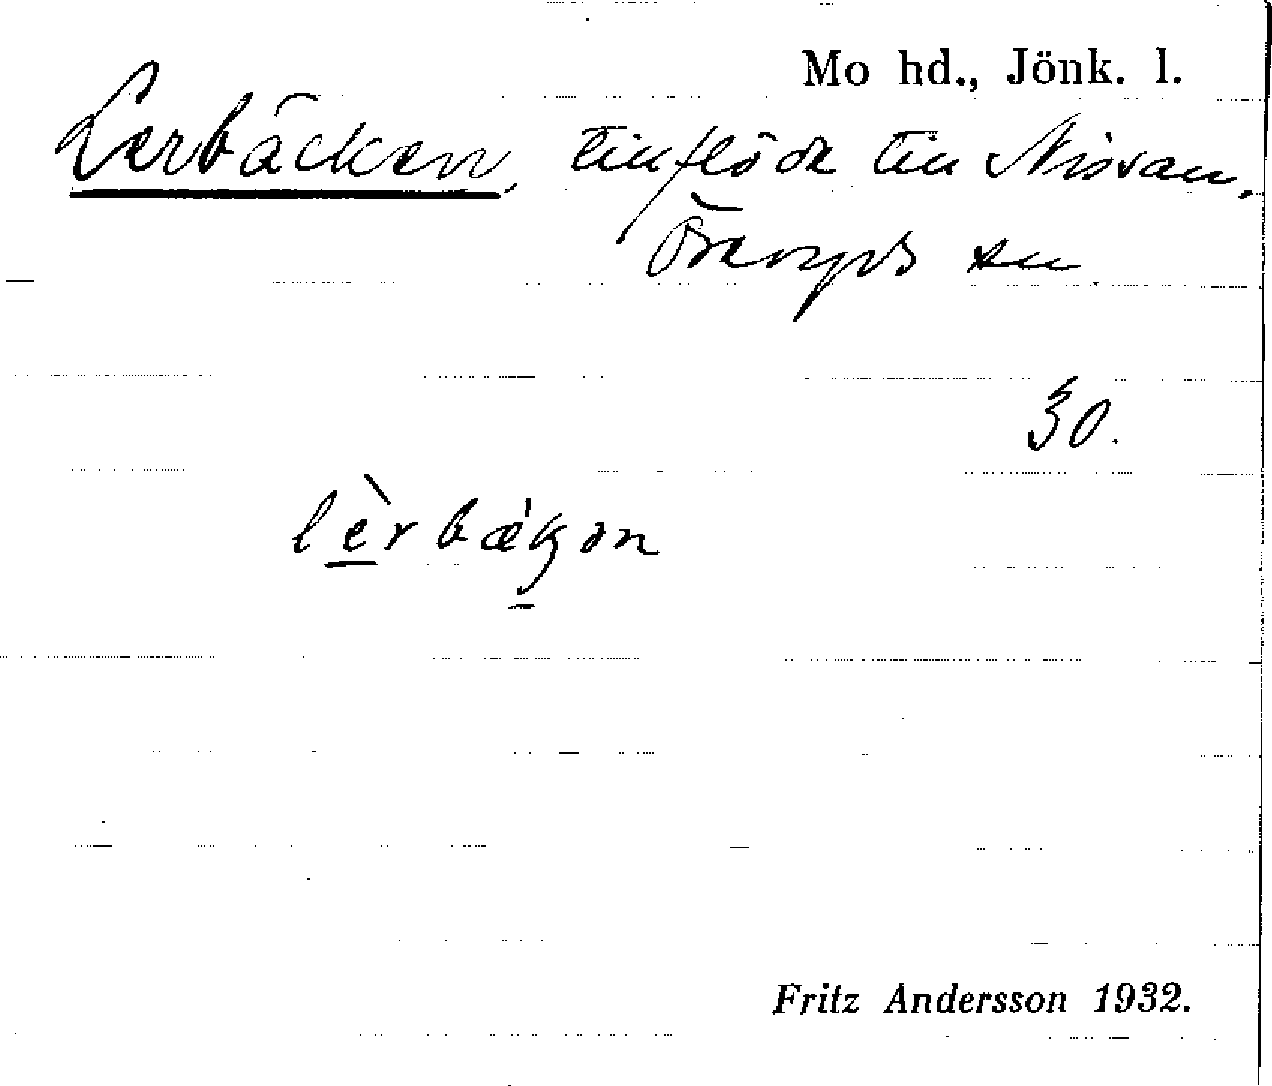 Mo hd., Jönk. l.
Lerbäcken, tillflöde till Nissan,
sn
30.
lèrbækən
Fritz Andersson 1932.